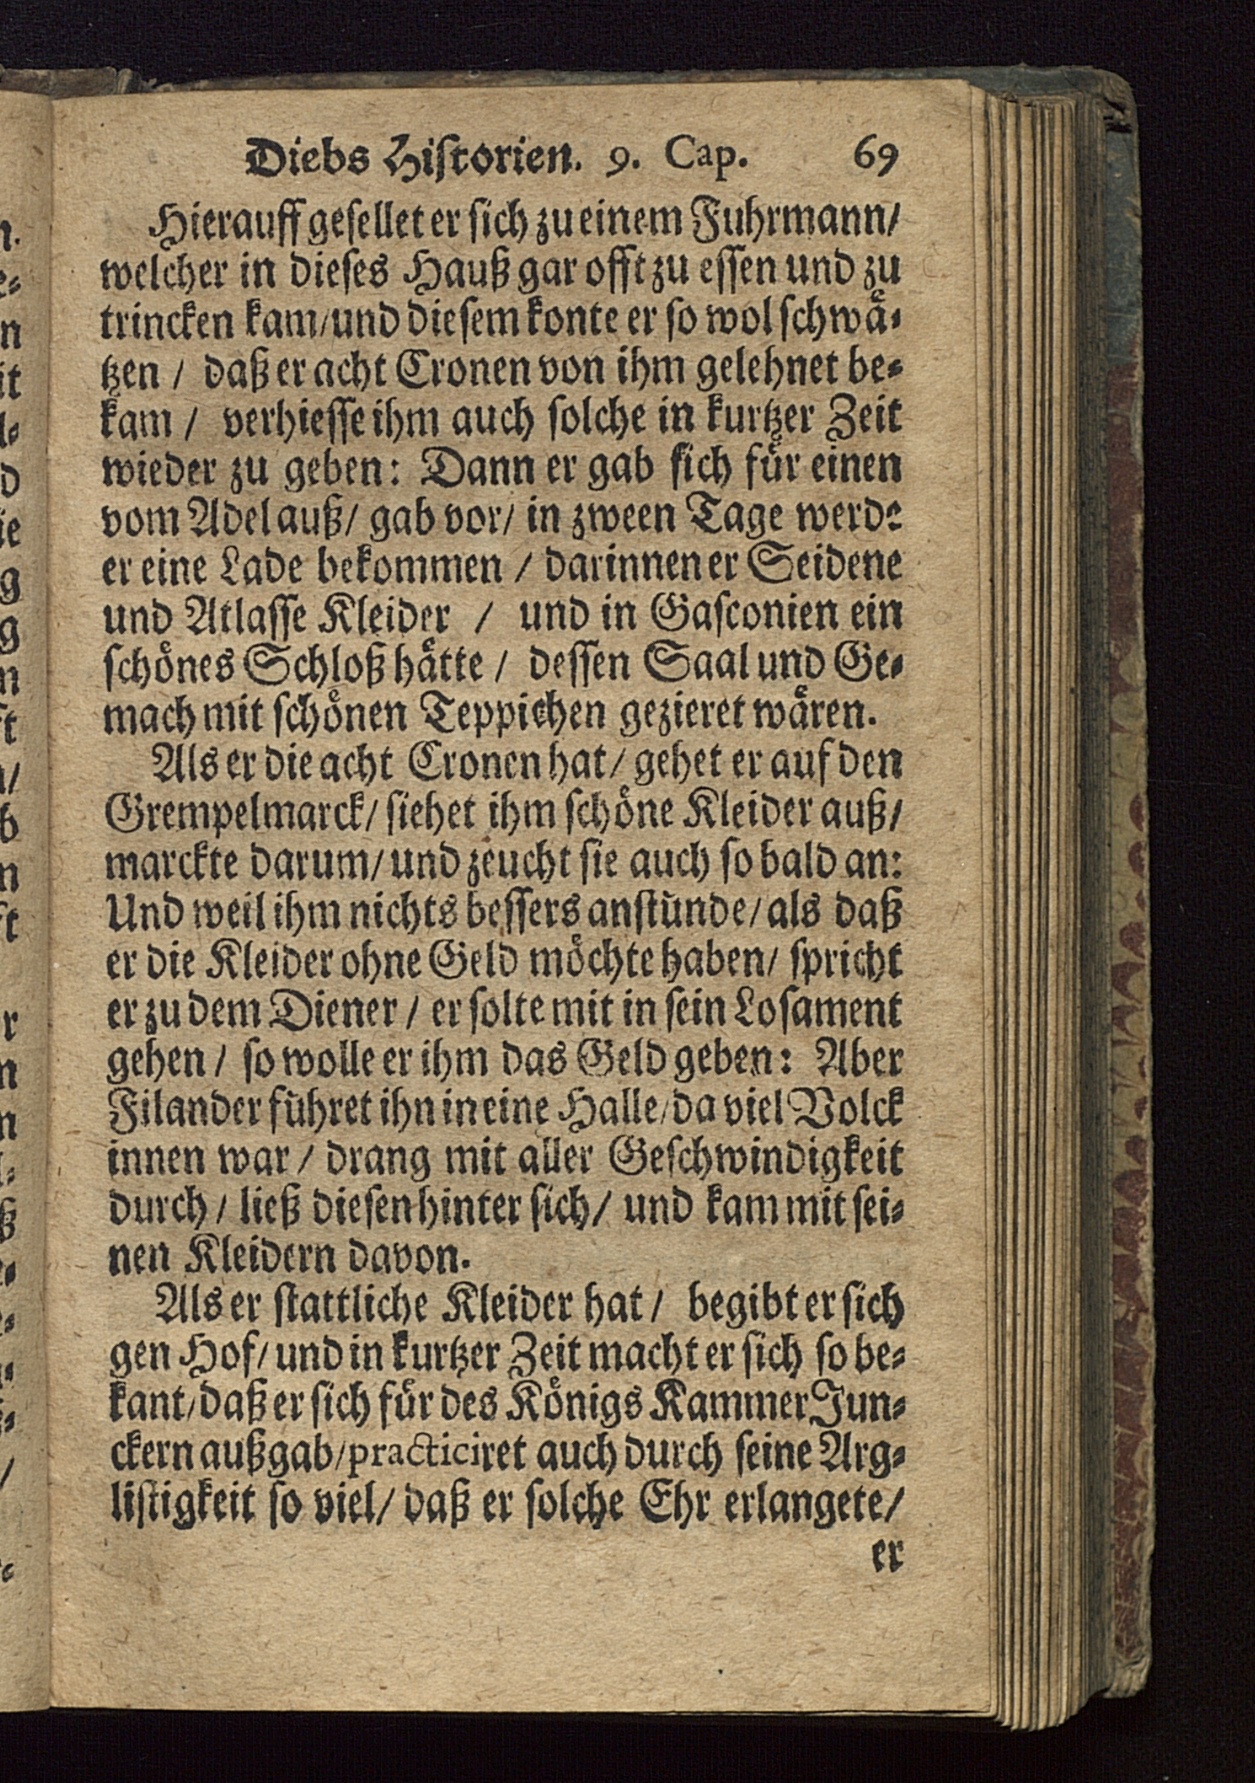 Diebs Historien. 9. Cap. 69
Hierauff gesellet er sich zu einem Fuhrmann/
welcher in dieses Hauß gar offt zu essen und zu
trincken kam/und diesem konte er so wol schwä-
tzen / daß er acht Cronen von ihm gelehnet be-
kam / verhiesse ihm auch solche in kurtzer Zeit
wieder zu geben: Dann er gab sich für einen
vom Adel auß/ gab vor/ in zween Tage werde
er eine Lade bekommen / darinnen er Seidene
und Atlasse Kleider / und in Gasconien ein
schönes Schloß hätte / dessen Saal und Ge-
mach mit schönen Teppichen gezieret wären.
Als er die acht Cronen hat/ gehet er auf den
Grempelmarck/ siehet ihm schöne Kleider auß/
marckte darum/ und zeucht sie auch so bald an:
Und weil ihm nichts bessers anstünde/ als daß
er die Kleider ohne Geld möchte haben/ spricht
er zu dem Diener / er solte mit in sein Losament
gehen / so wolle er ihm das Geld geben: Aber
Filander führet ihn in eine Halle/da viel Volck
innen war / drang mit aller Geschwindigkeit
durch / ließ diesen hinter sich/ und kam mit sei-
nen Kleidern davon.
Als er stattliche Kleider hat / begibt er sich
gen Hof/ und in kurtzer Zeit macht er sich so be-
kant/daß er sich für des Königs Kammer Jun-
ckern außgab/practiciret auch durch seine Arg-
listigkeit so viel/ daß er solche Ehr erlangete/
er